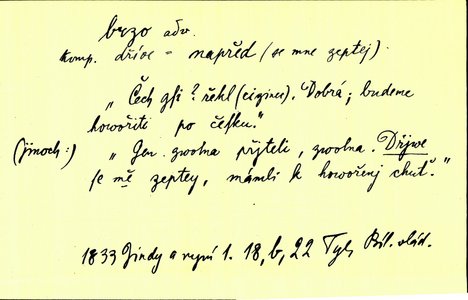 brzo adv.
komp. dříve = napřed (se mne zeptej).
„Čech gsi? řekl (cizinec). Dobrá; budeme
howořiti po česku."
(jinoch:) „Gen zwolna přjteli, zwolna. Dřjwe
se mě zeptey, mámli k howořenj chuť."
1833 Jindy a nynj 1. 18, b, 22 Tyl,